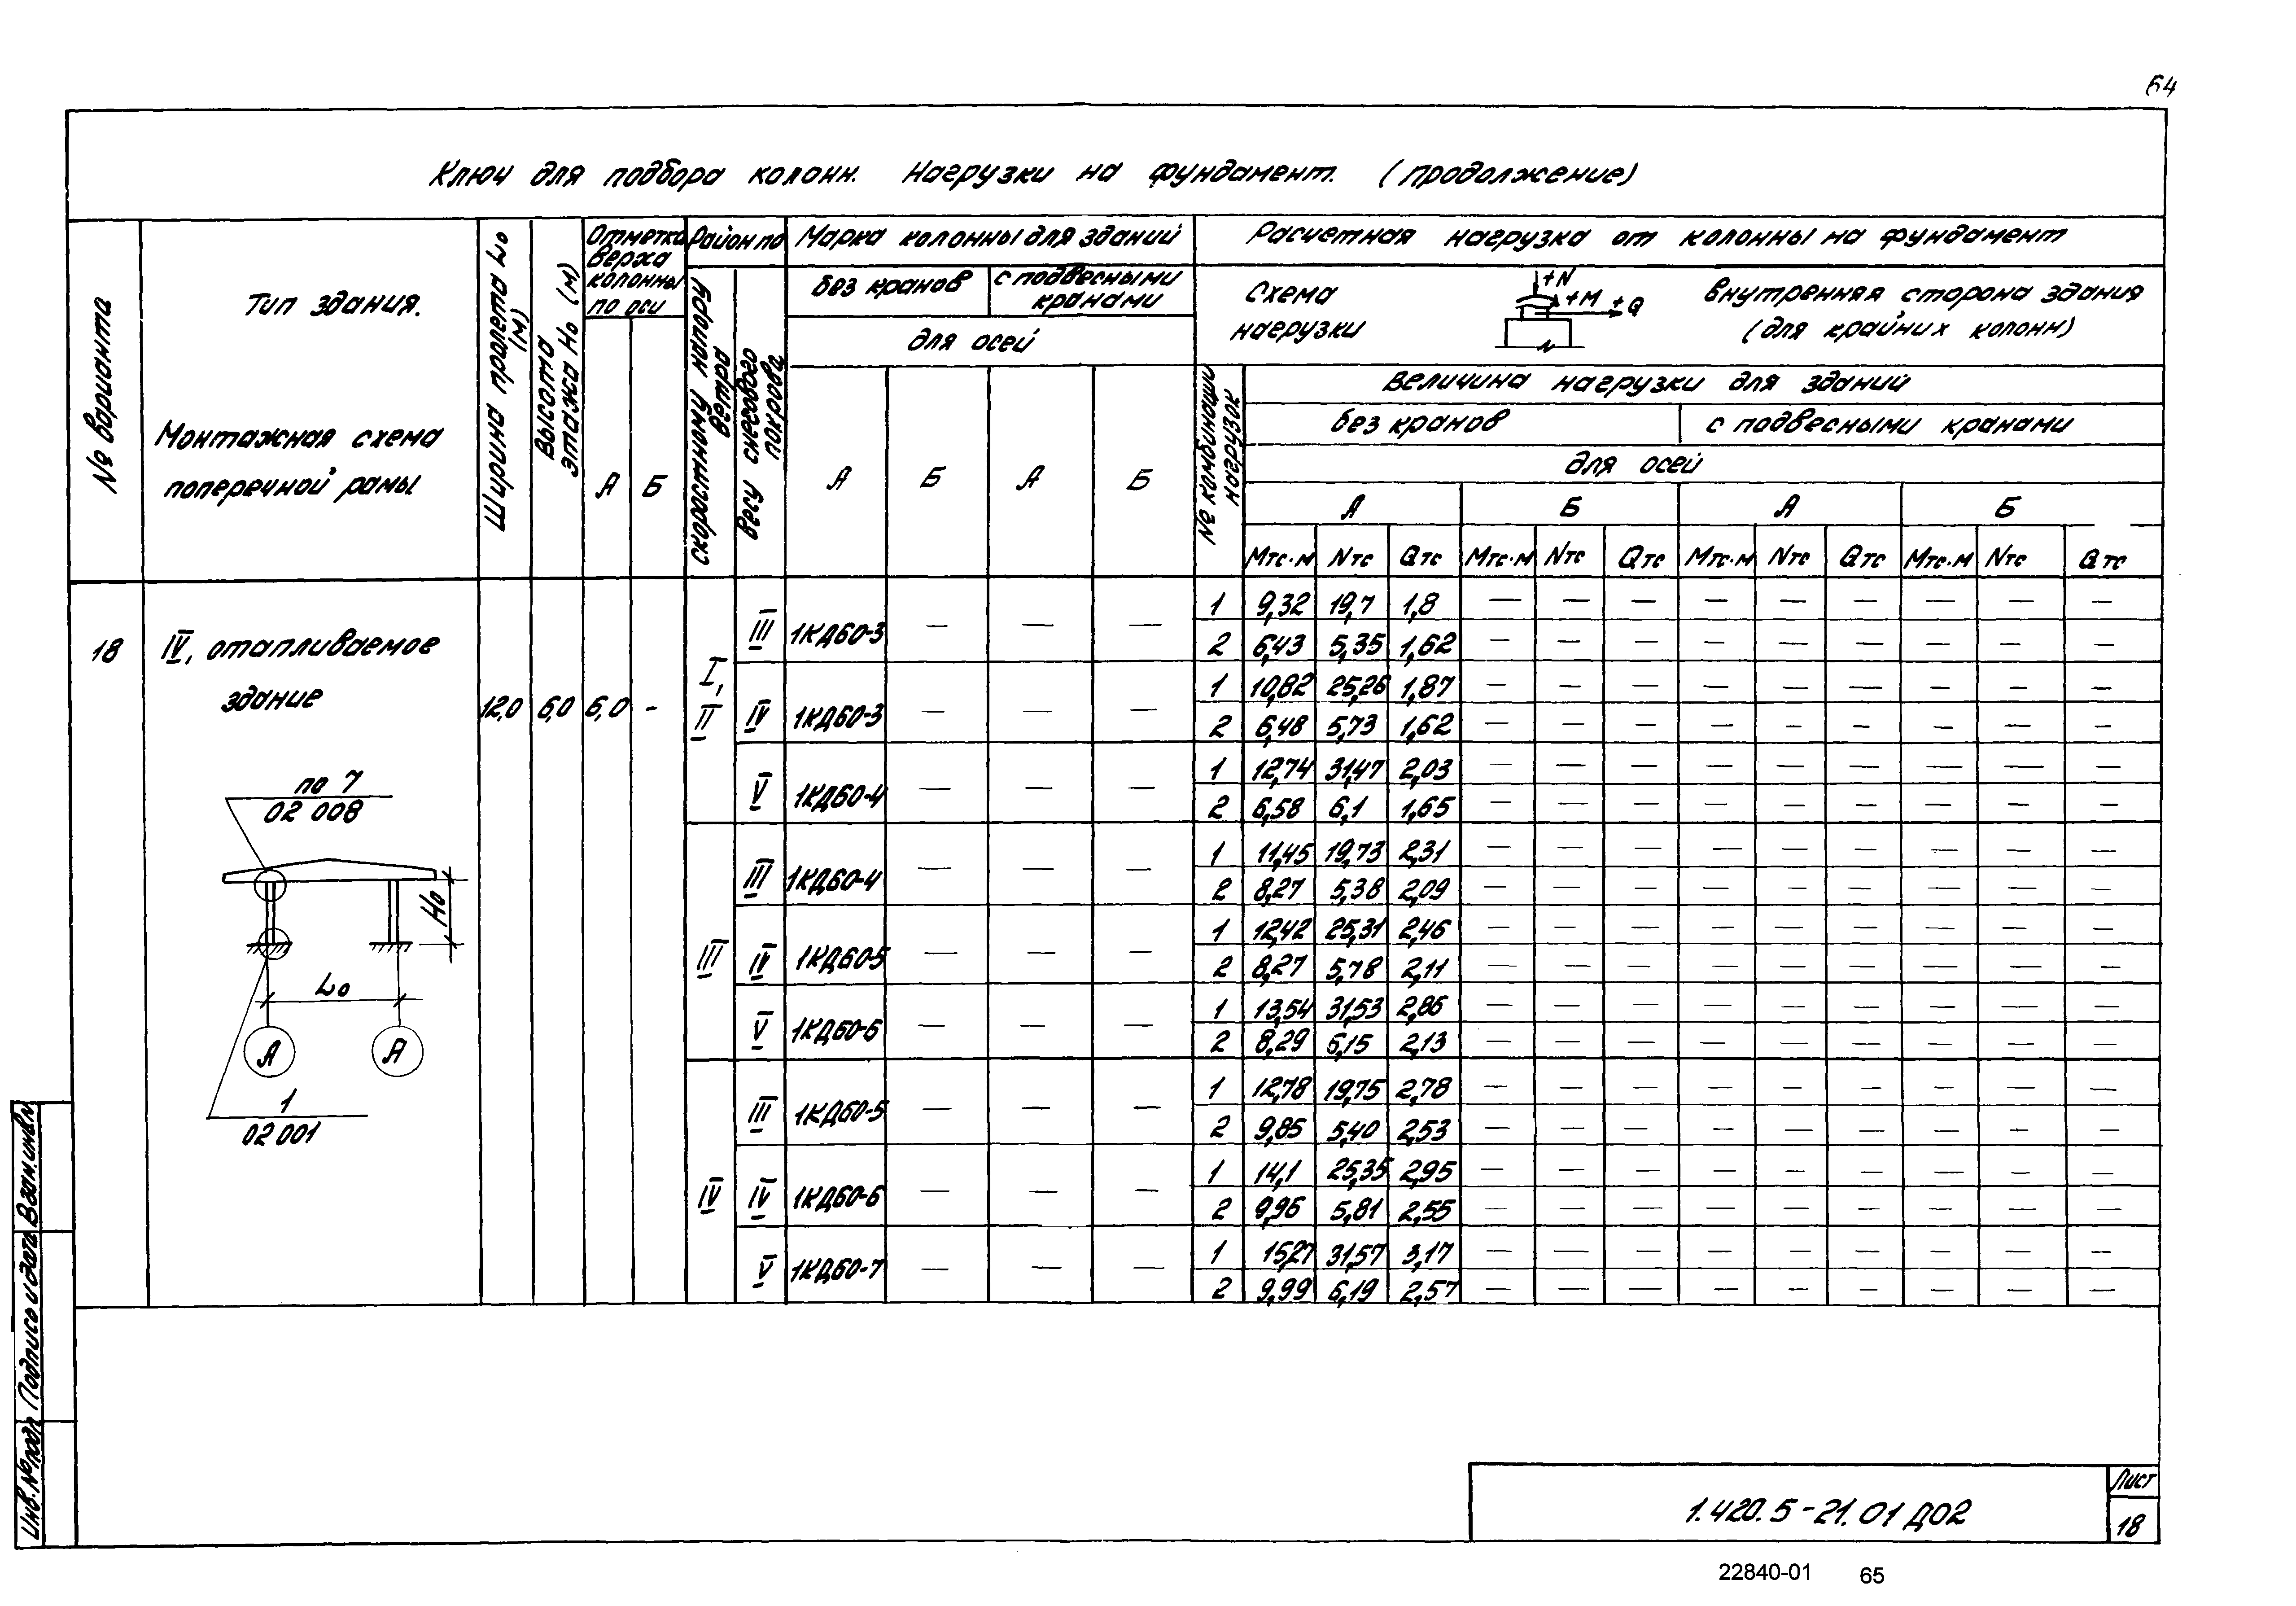 64
Ключ для подбора колонн. Нагрузки на фундамент. (продолжение)
№ варианта
Тип здания.
Монтажная схема
поперечной рамы
Ширина пролета Lо
(м)
Высота
этажа Hо (м)
Отметка
верха
колонны
по оси
А Б
Район по
скоростному напору
ветра
весу снегового
покрова
Марка колонны для зданий
без кранов
с подвесными
кранами
для осей
А Б А Б
Расчетная нагрузка от колонны на фундамент
Схема
нагрузки
+N
+M
+Q
внутренняя сторона здания
(для крайних колонн)
№ комбинации
нагрузок
Величина нагрузки для зданий
без кранов с подвесными кранами
для осей
А Б А Б
Мтс·м Nтс Qтс Мтс·м Nтс Qтс Мтс·м Nтс Qтс Мтс·м Nтс Qтс
18
IV, отапливаемое
здание
12,0 6,0 6,0 -
по 7
02 008
Hо
Lо
А А
1
02 001
I,
II
III 1КД60-3 — — —
1 9,32 19,7 1,8 — — — — — — — — —
2 6,43 5,35 1,62 — — — — — — — — —
IV 1КД60-3 — — —
1 10,82 25,26 1,87 — — — — — — — — —
2 6,48 5,73 1,62 — — — — — — — — —
V 1КД60-4 — — —
1 12,74 31,47 2,03 — — — — — — — — —
2 6,58 6,1 1,65 — — — — — — — — —
III
III 1КД60-4 — — —
1 11,45 19,73 2,31 — — — — — — — — —
2 8,27 5,38 2,09 — — — — — — — — —
IV 1КД60-5 — — —
1 12,42 25,31 2,46 — — — — — — — — —
2 8,27 5,78 2,11 — — — — — — — — —
V 1КД60-6 — — —
1 13,54 31,53 2,86 — — — — — — — — —
2 8,29 6,15 2,13 — — — — — — — — —
IV
III 1КД60-5 — — —
1 12,78 19,75 2,78 — — — — — — — — —
2 9,85 5,40 2,53 — — — — — — — — —
IV 1КД60-6 — — —
1 14,1 25,35 2,95 — — — — — — — — —
2 9,96 5,81 2,55 — — — — — — — — —
V 1КД60-7 — — —
1 15,27 31,57 3,17 — — — — — — — — —
2 9,99 6,19 2,57 — — — — — — — — —
Инв.№подл. Подпись и дата Взам.инв.№
1.420.5-21.01 Д02
Лист
18
22840-01 65